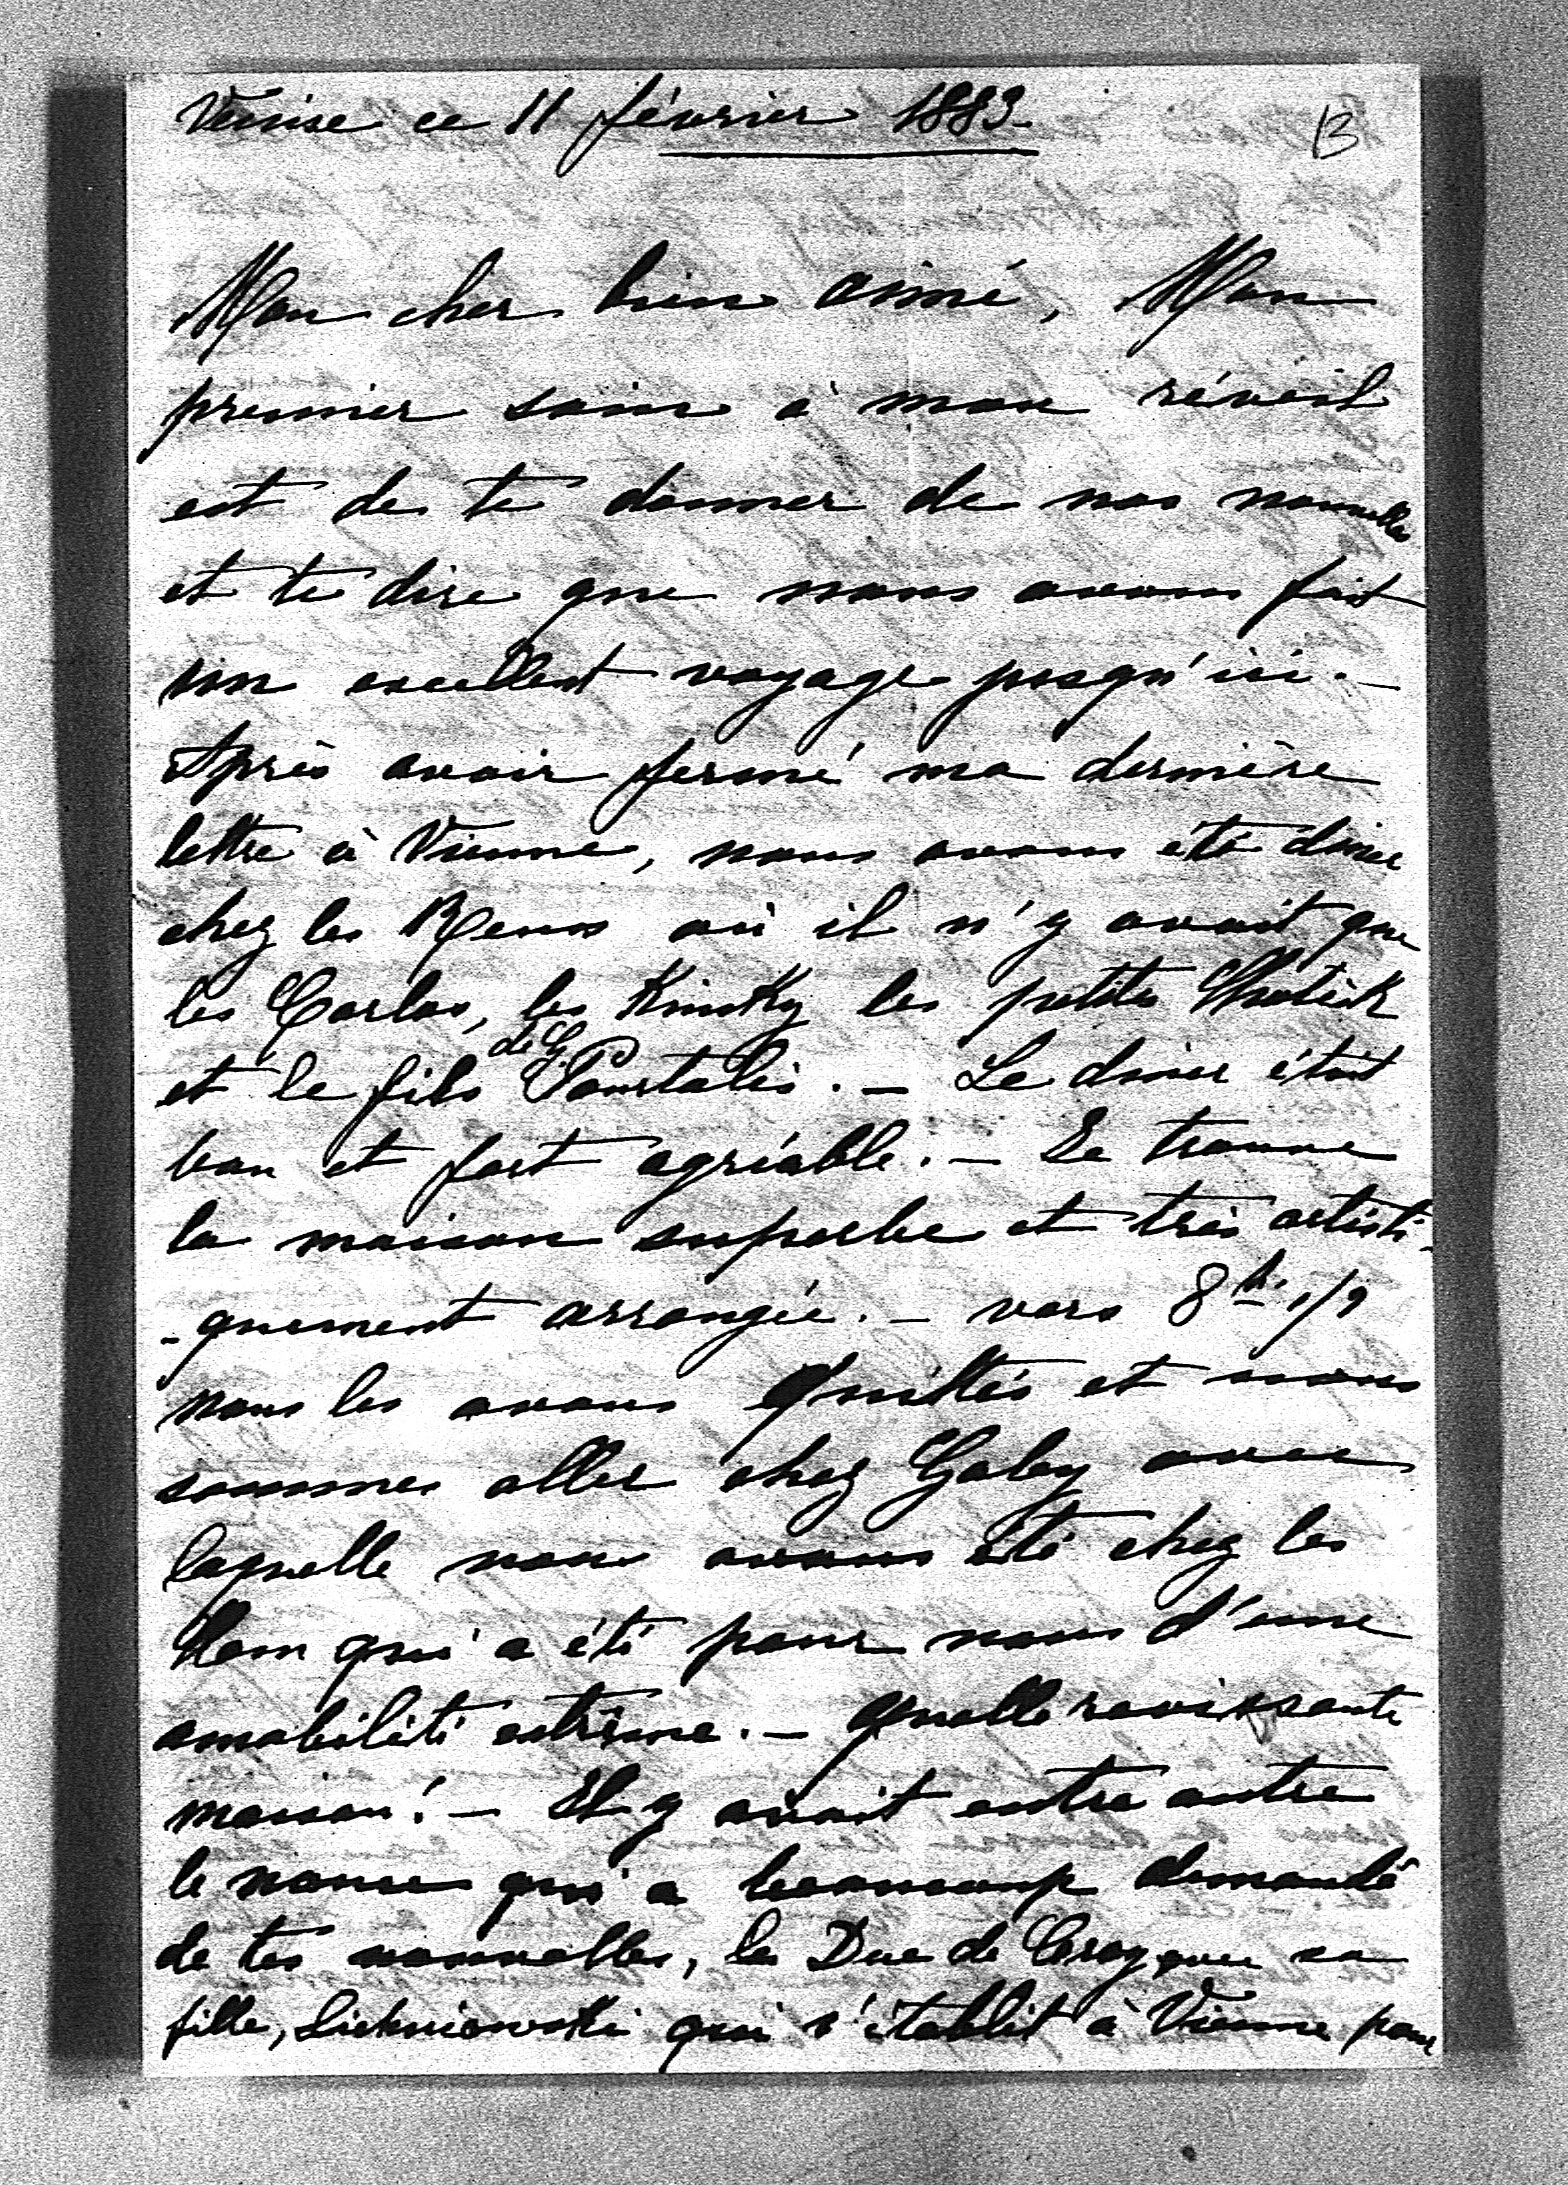 Venise ce 11 février 1883.
13
Mon cher bien aimé, Mon
premier soin à mon réveil
est de te donner de nos nouvelles
et te dire que nous avons fait
un excellent voyage jusqu'ici. —
Après avoir fermé ma dernière
lettre à Vienne, nous avons été diner
chez les Reuss où il n'y avait que
les Carlos, les Kinsky les petites Chotek
et le fils de G. Pourtalès. — Le diner était
bon et fort agréable. — Je trouve
la maison superbe et très artisti-
-quement arrangée. — vers 8 h. 1/2
nous les avons quittés et nous
sommes aller chez Gaby avec
laquelle nous avons été chez les
qui a été pour nous d'une
amabilité extrême. — quelle ravissante
maison! — Il y avait entre autre
le nonce qui a beaucoup demandé
de tes nouvelles, le Duc de Croy avec sa
fille, Lichnowski qui s'établit à Vienne pour